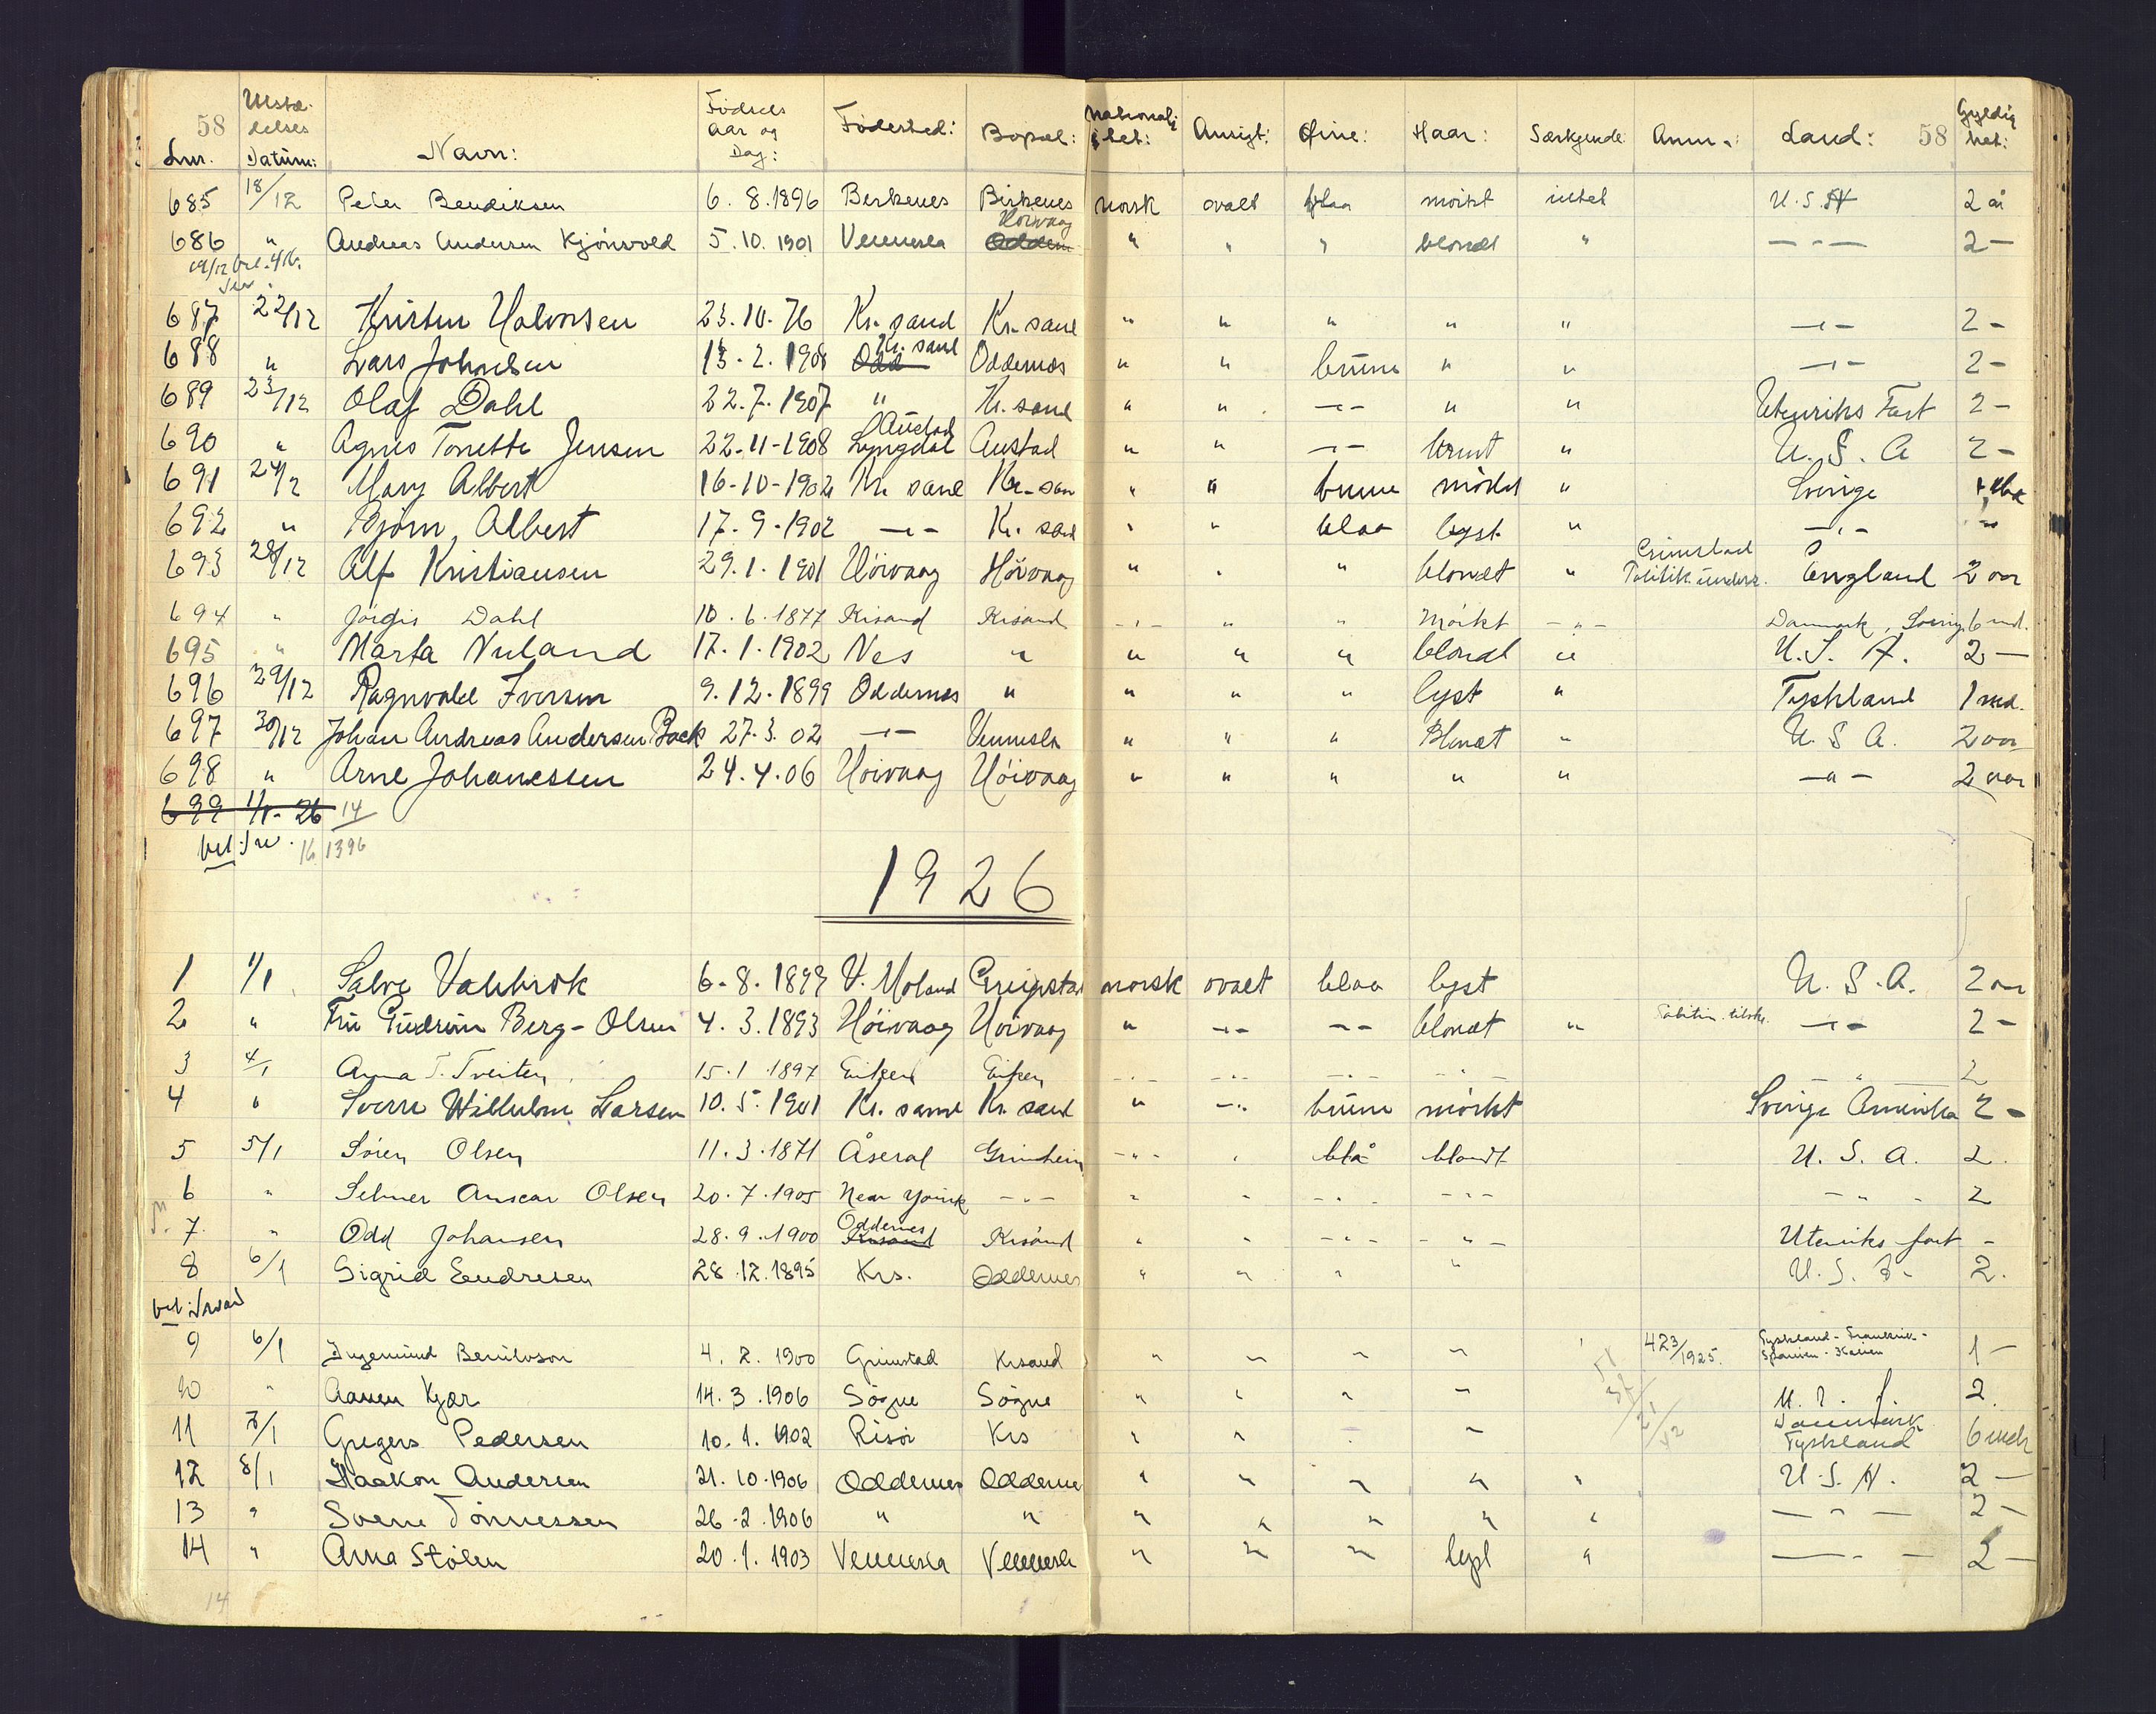 58 Utstæ- Fødsels Nationali- Gyldig
Lnr. delses Datum: Navn: Aar og Dag: Fødested: Bopæl: tet: Ansigt: Øine: Haar: Særkjende: Anm.: Land: 58 het:
685 18/12 Peter Bendiksen 6. 8. 1896 Berkenes Birkenes norsk ovalt blaa mörkt intet U.S.A 2 år
Höivaag
686 " Andreas Andersen Kjönsvold 5. 10. 1901 Vennesla " " " blondt " — " — 2 —
19/12
687 22/12 Kristen Halvorsen 23. 10. 76 Kr. sand Kr. sand " " " " " — " — 2 —
Kr. sand
688 " Lars Johnsen 13. 2. 1908 Odd Oddernes " " brune " " — " — 2 —
689 23/12 Olaf Dahl 22. 7. 1907 " Kr. sand " " — " — " " Utenriks Fart 2 —
Austad
690 " Agnes Tonette Jensen 22-11-1908 Lyngdal Austad " " — " — brunt " U. S. A 2 —
691 24/12 Mary Albert 16-10-1902 Kr. sand Kr. san " " brune mörkt " Sverige
692 " Björn Albert 17-9-1902 — " — Kr. sand " " blaa lyst " — " — "
Grimstad
693 28/12 Alf Kristiansen 29. 1. 1901 Höivaag Höivaag " " " blondt " Politik England 2 aar
694 " Dahl 10. 6. 1877 Krsand Krsand — " — " " Mörkt — " — Danmark, Sverig 6 md.
695 " Marta Nuland 17. 1. 1902 Nes " " " " blondt " U. S. A. 2 —
696 29/12 Ragnvald Iversen 9. 12. 1899 Oddernes " " " " lyst " Tyskland 1 md.
697 30/12 Johan Andreas Andersen Back 27. 3. 02 — " — Vennesla " " " Blondt " U. S. A. 2 aar
698 " Arne Johanessen 24. 4. 06 Höivaag Höivaag " " " " " — " — 2 aar
699 1/1 - 26 14
16 1396
1926
1 1/1 Salve 6. 8. 1899 V. Moland Greipstad norsk ovalt blaa lyst U. S. A. 2 aar
2 " Fru Gudrun Berg-Olsen 4. 3. 1893 Höivaag Höivaag " — " — — " — blondt " — " — 2 —
3 4/1 Anna T. Treiten 15. 1. 1897 Eiken Eiken — " — — " — — " — — " — — " — 2
4 " Sverre Wilhelm Larsen 10. 5. 1901 Kr. sand Kr. sand " — " — brune mörkt Sverige Amerika 2 —
5 5/1 Sören Olsen 11. 3. 1871 Åseral Grindheim — " — " blå blondt U. S. A. 2.
6 " Selmer Anscar Olsen 20. 7. 1905 New Yorrk — " — " " — " — — " — — " — 2
Oddernes
7. " Odd Johansen 28. 9. 1900 Krsand Krsand " " — " — — " — Utenriks fart —
8 6/1 Sigrid Endresen 28. 12. 1895 Krs. Oddernes " " " " U. S. A. 2.
9 6/1 Ingemund Berulvson 4. 2. 1900 Grimstad Krsand " " " " ' 423/1925. Tyskland - Frankrik - Spanien - Italien 1 —
10 " Aanen Kjær 14. 3. 1906 Sögne Sögne " " " " 2.
11 7/1 Gregers Pedersen 10. 1. 1902 Risör Krs " " " " Danmark Tyskland 6 mdr
12 8/1 Haakon Andersen 21. 10. 1906 Oddernes Oddernes " " " " " U. S. A. 2 —
13 " Sverre Tönnessen 26. 2. 1906 " " " " " " " — " — 2 —
14 " Anna Stölen 20. 1. 1903 Vennesla Vennesla " " " lyst " — " — 2 —
14